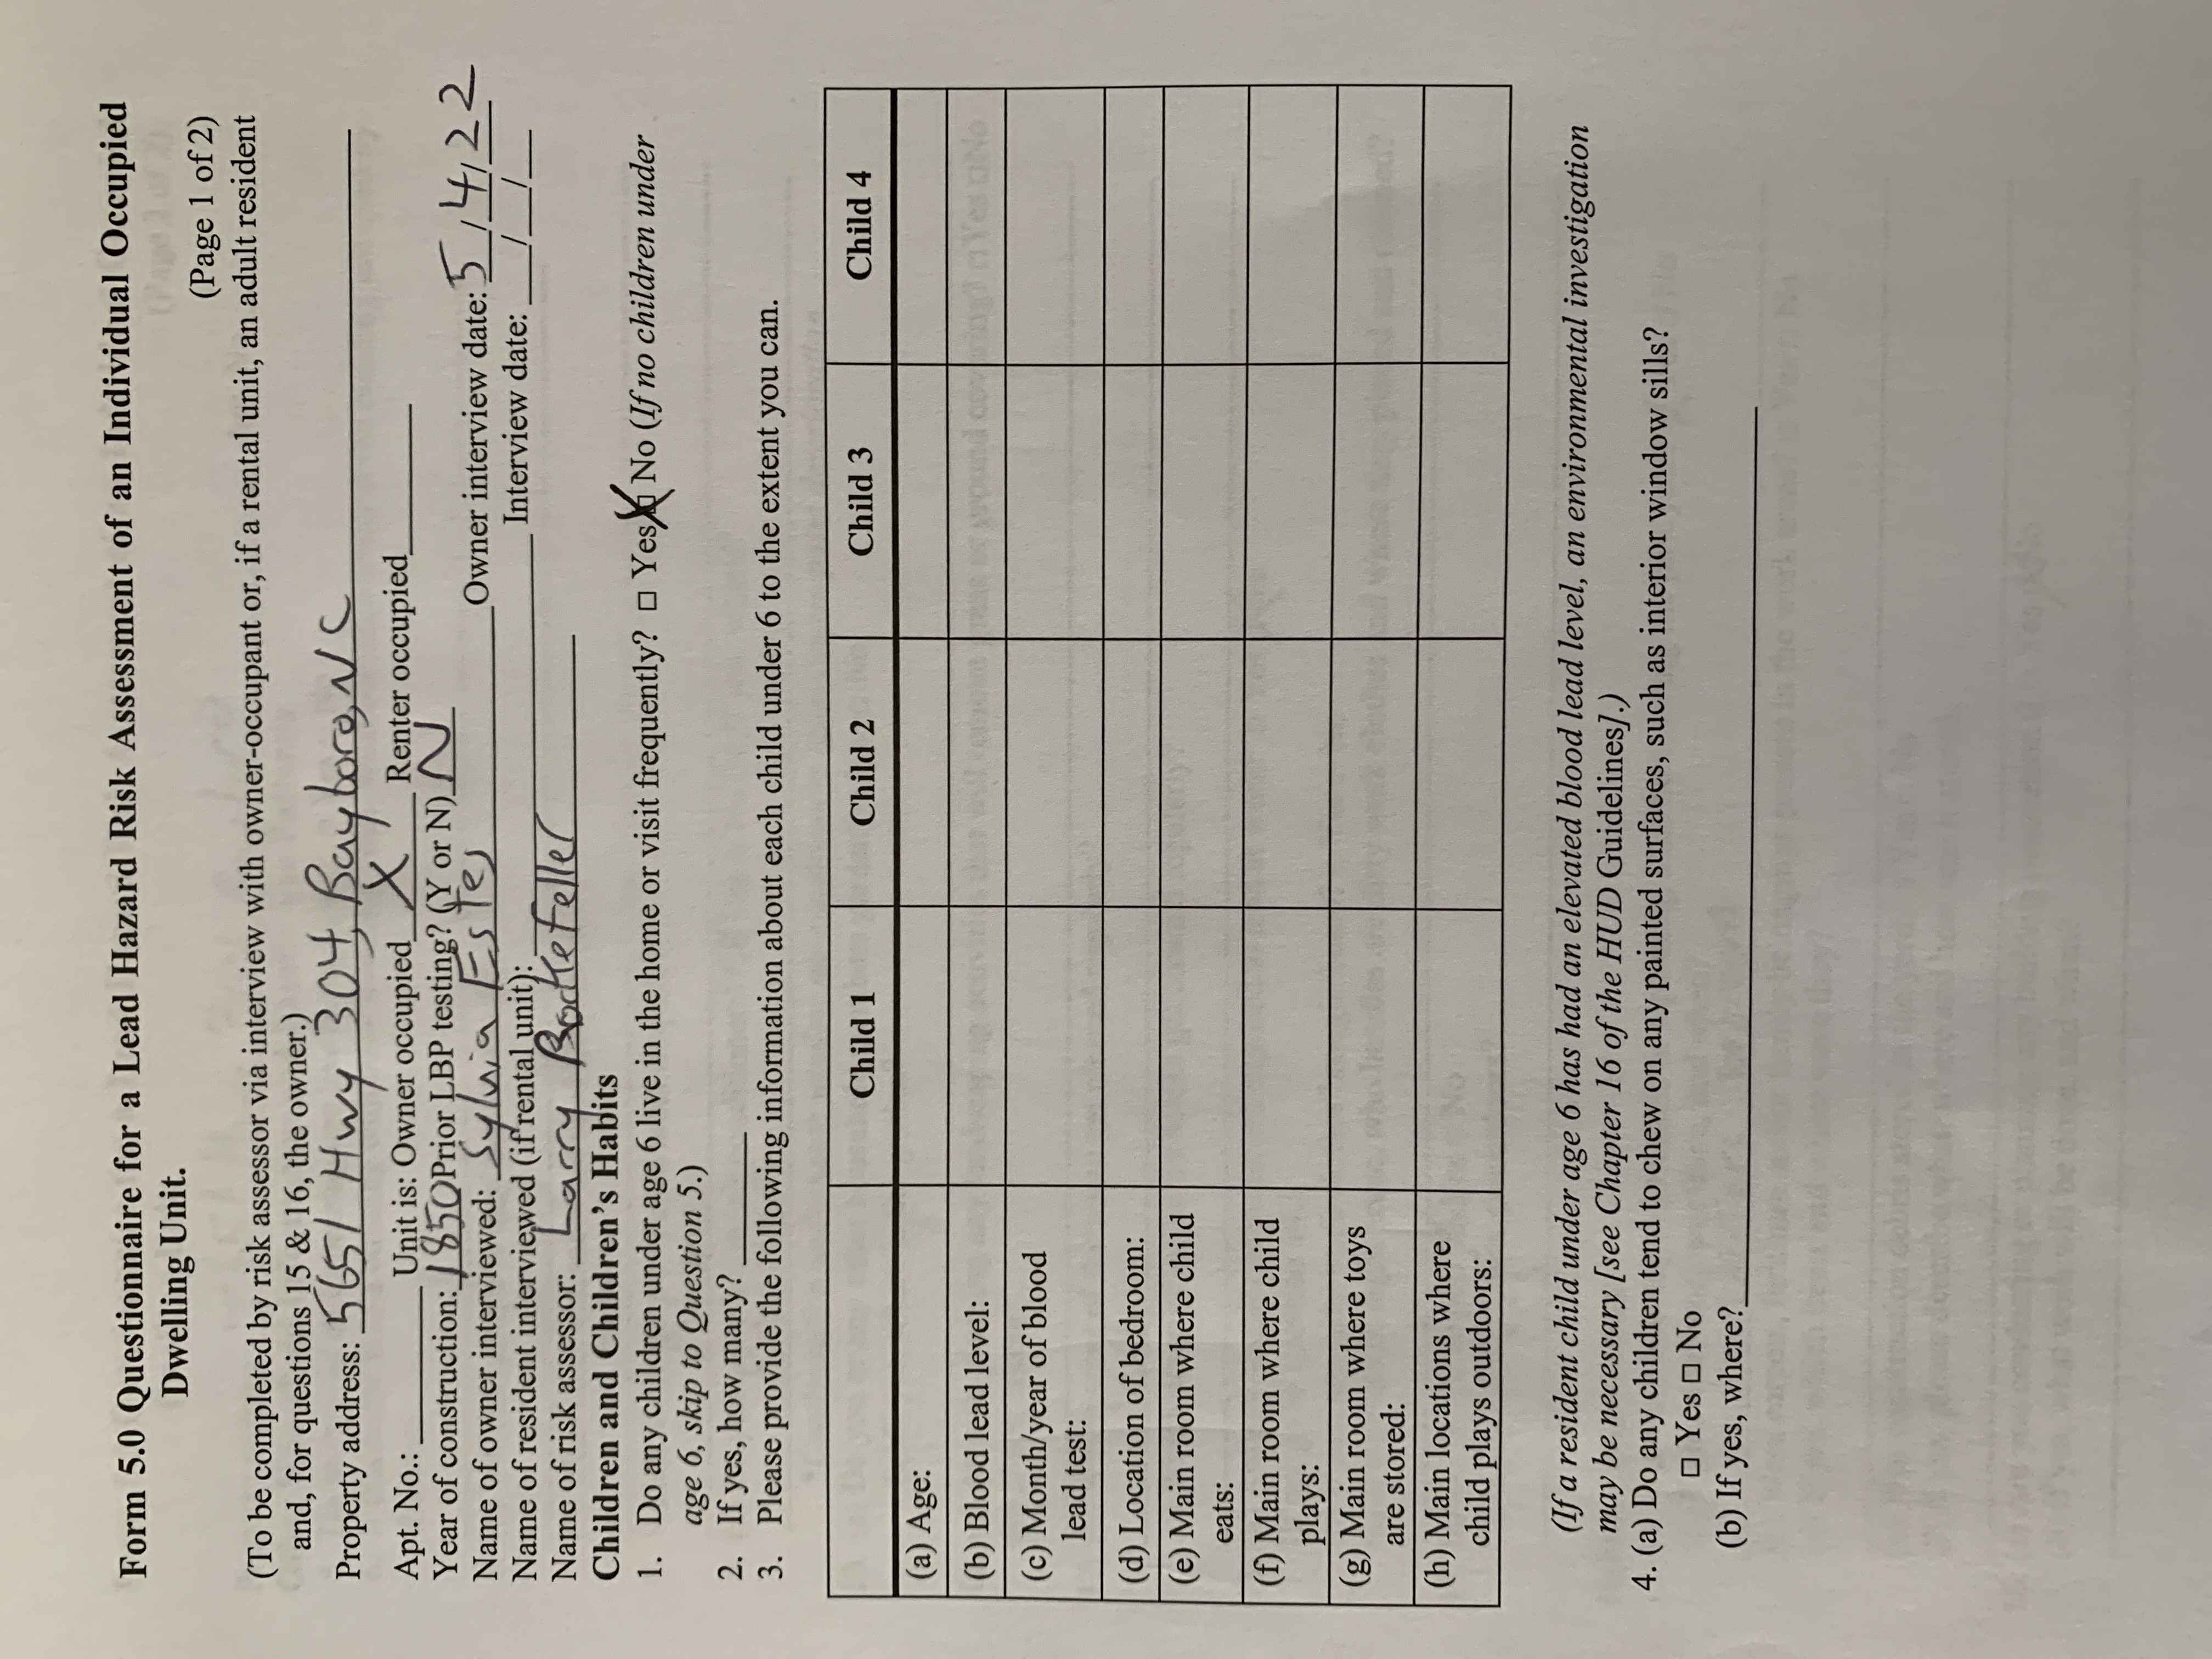 Form 5.0 Questionnaire for a Lead Hazard Risk Assessment of an Individual Occupied
Dwelling Unit.
(Page 1 of 2)
(To be completed by risk assessor via interview with owner-occupant or, if a rental unit, an adult resident
and, for questions 15 & 16, the owner.)
Property address: 5651 Hwy 304, Bayboro, NC
Apt. No.: ________ Unit is: Owner occupied X Renter occupied________
Year of construction: 1850 Prior LBP testing? (Y or N) N
Name of owner interviewed: Sylvia Estes Owner interview date: 5/4/22
Name of resident interviewed (if rental unit): ________ Interview date: ___/___/___
Name of risk assessor: Larry Rockefeller
Children and Children's Habits
1. Do any children under age 6 live in the home or visit frequently? □ Yes ☒ No (If no children under
age 6, skip to Question 5.)
2. If yes, how many? ________
3. Please provide the following information about each child under 6 to the extent you can.
Child 1 Child 2 Child 3 Child 4
(a) Age:
(b) Blood lead level:
(c) Month/year of blood
lead test:
(d) Location of bedroom:
(e) Main room where child
eats:
(f) Main room where child
plays:
(g) Main room where toys
are stored:
(h) Main locations where
child plays outdoors:
(If a resident child under age 6 has had an elevated blood lead level, an environmental investigation
may be necessary [see Chapter 16 of the HUD Guidelines].)
4. (a) Do any children tend to chew on any painted surfaces, such as interior window sills?
□ Yes □ No
(b) If yes, where?________